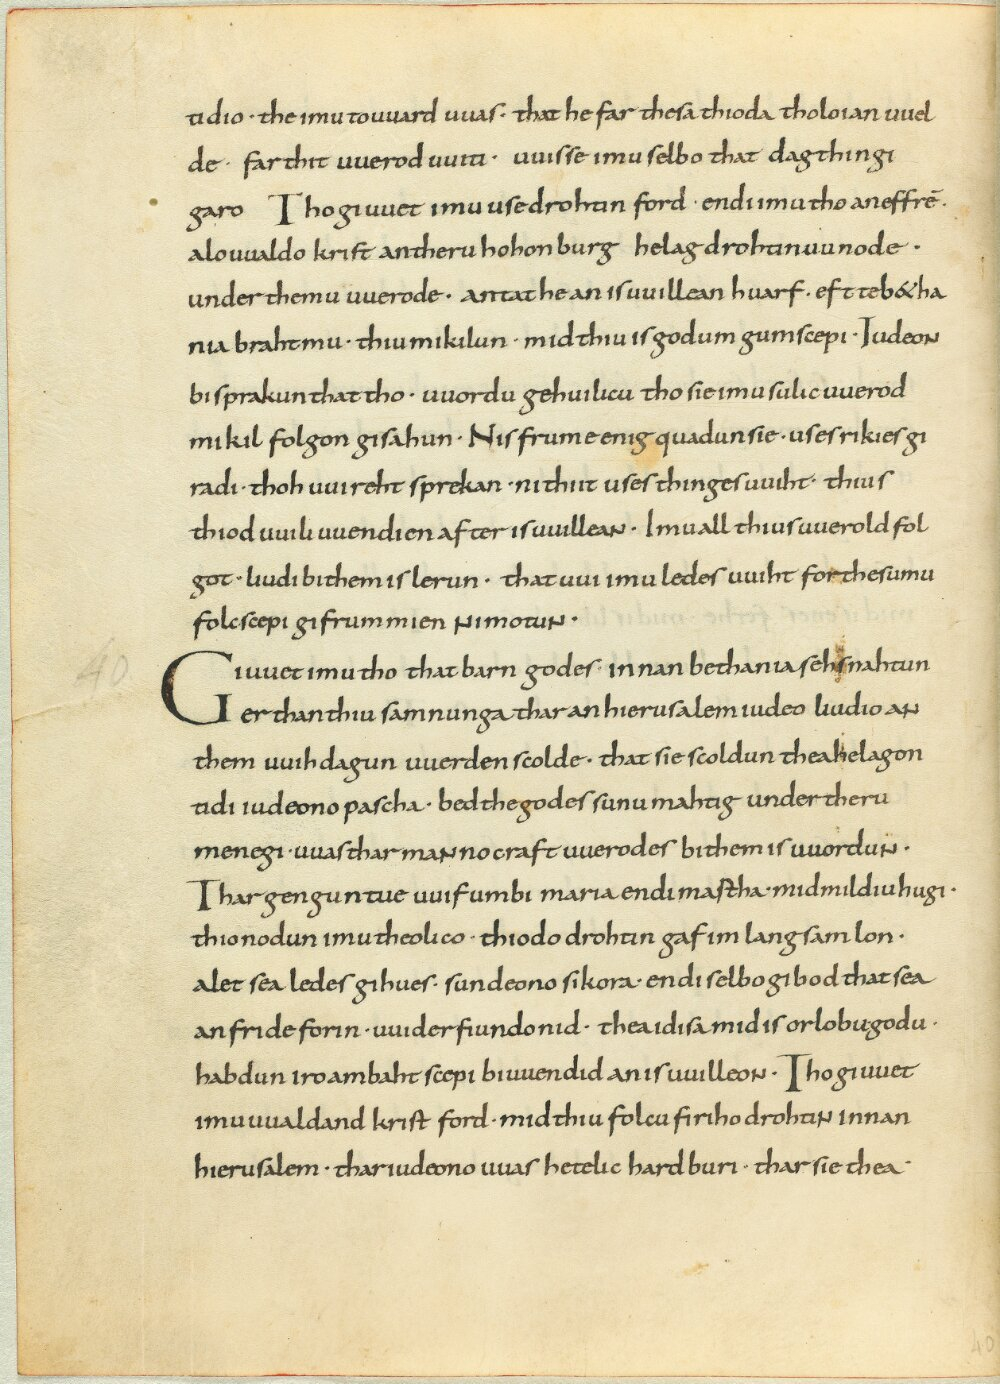 tidio · the imu touuard uuas · that he far thesa thioda tholoian uuel
de · far thit uuerod uuiti · uuisse imu selbo that dagthingi
garo Tho giuuet imu use drohtin ford · endi imu tho an effrē ·
alouualdo krist an theru hohon burg helag drohtin uunode ·
under themu uuerode · antat he an is uuillean huarf · eft te beth&ha
nia brahtmu · thiu mikilun · mid thiu is godum gumscepi · Iudeon
bisprakun that tho · uuordu gehuilicu tho sie imu sulic uuerod
mikil folgon gisahun · Nis frume enig quadun sie · uses rikies gi
radi · thoh uui reht sprekan · ni thiit uses thinges uuiht · thius
thiod uuili uuendien after is uuillean · Imu all thius uuerold fol
got · liudi bi them is lerun · that uui imu ledes uuiht for thesumu
folcscepi gifrummien ni motun ·
Giuuet imu tho that barn godes · innan bethania sehs nahtun
er than thiu samnunga thar an hierusalem iudeo liudio an
them uuihdagun uuerden scolde · that sie scoldun thea helagon
tidi iudeono pascha · bed the godes sunu mahtig under theru
menegi · uuas thar manno craft uuerodes bi them is uuordun ·
Thar gengun tue uuif umbi maria endi martha · mid mildiu hugi ·
thionodun imu theolico · thiodo drohtin gaf im langsam lon ·
alet sea ledes gihues · sundeono sikora · endi selbo gibod that sea
an fride forin · uuider fiundo nid · thea idisa mid is orlobu godu ·
habdun iro ambahtscepi biuuendid an is uuilleon · Tho giuuet
imu uualdand krist ford · mid thiu folcu firiho drohtin innan
hierusalem · thar iudeono uuas hetelic hard buri · thar sie thea
40
40